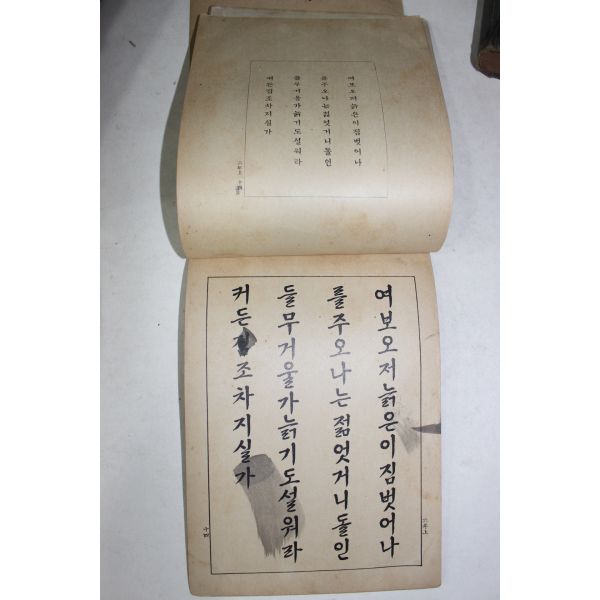 여보오저늙은이짐벗어나
를주오나는젊엇거니돌인
들무거울가늙기도설워라
커든짐조차지실가
六年上 十四
여보오저늙은이짐벗어나
를주오나는젊엇거니돌인
들무거울가늙기도설워라
커든짐조차지실가
六年上
十四